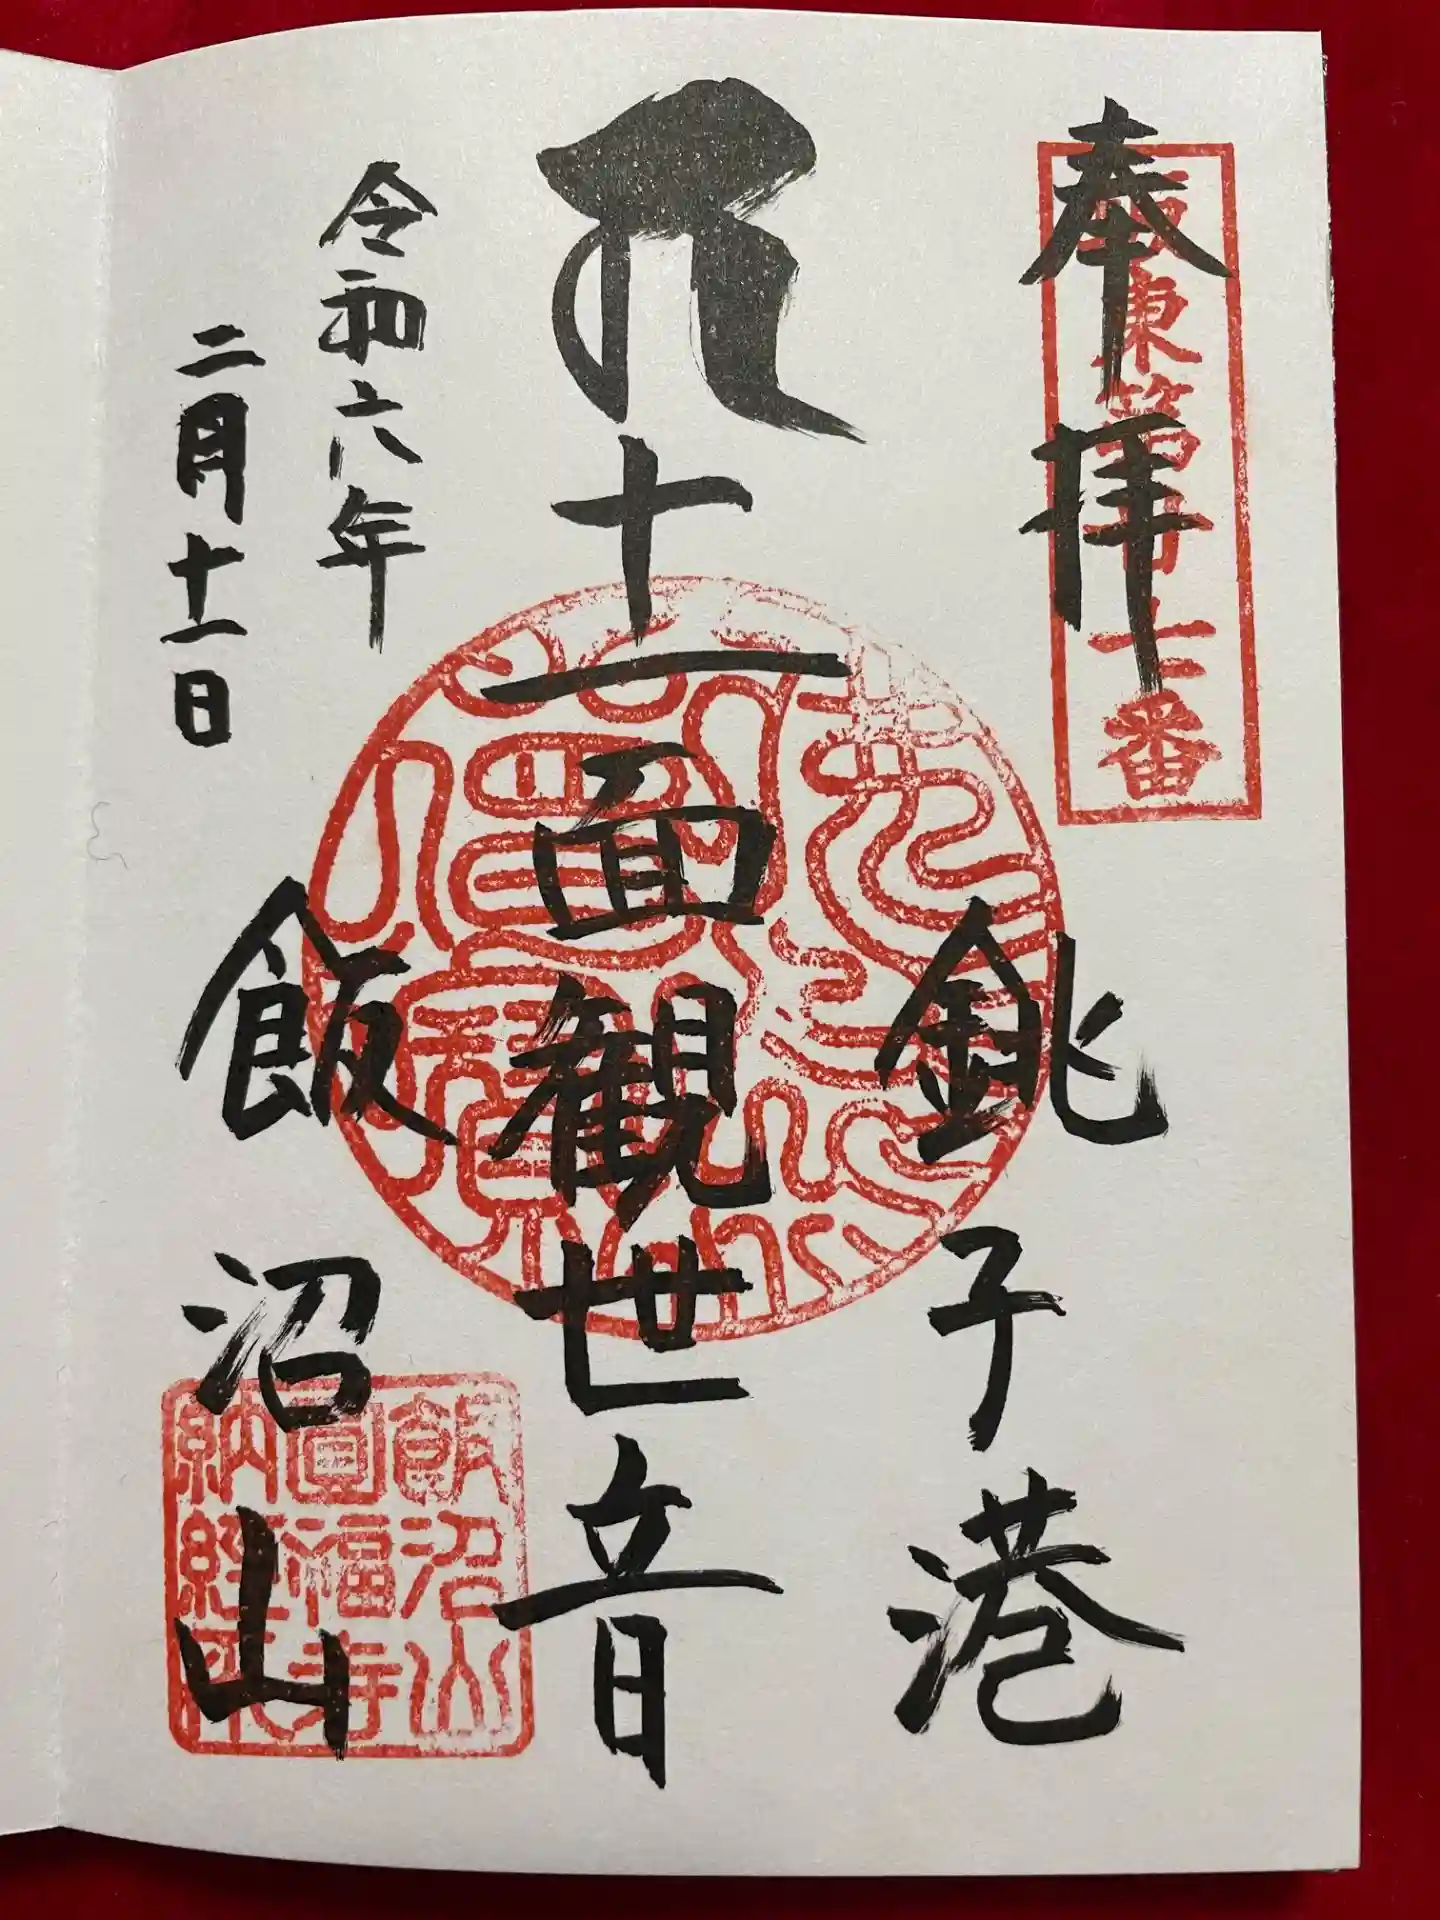 奉拝
坂東第廿七番
銚子港
十一面観世音
令和六年
二月十一日
飯沼山
飯沼山
圓福寺
納経所